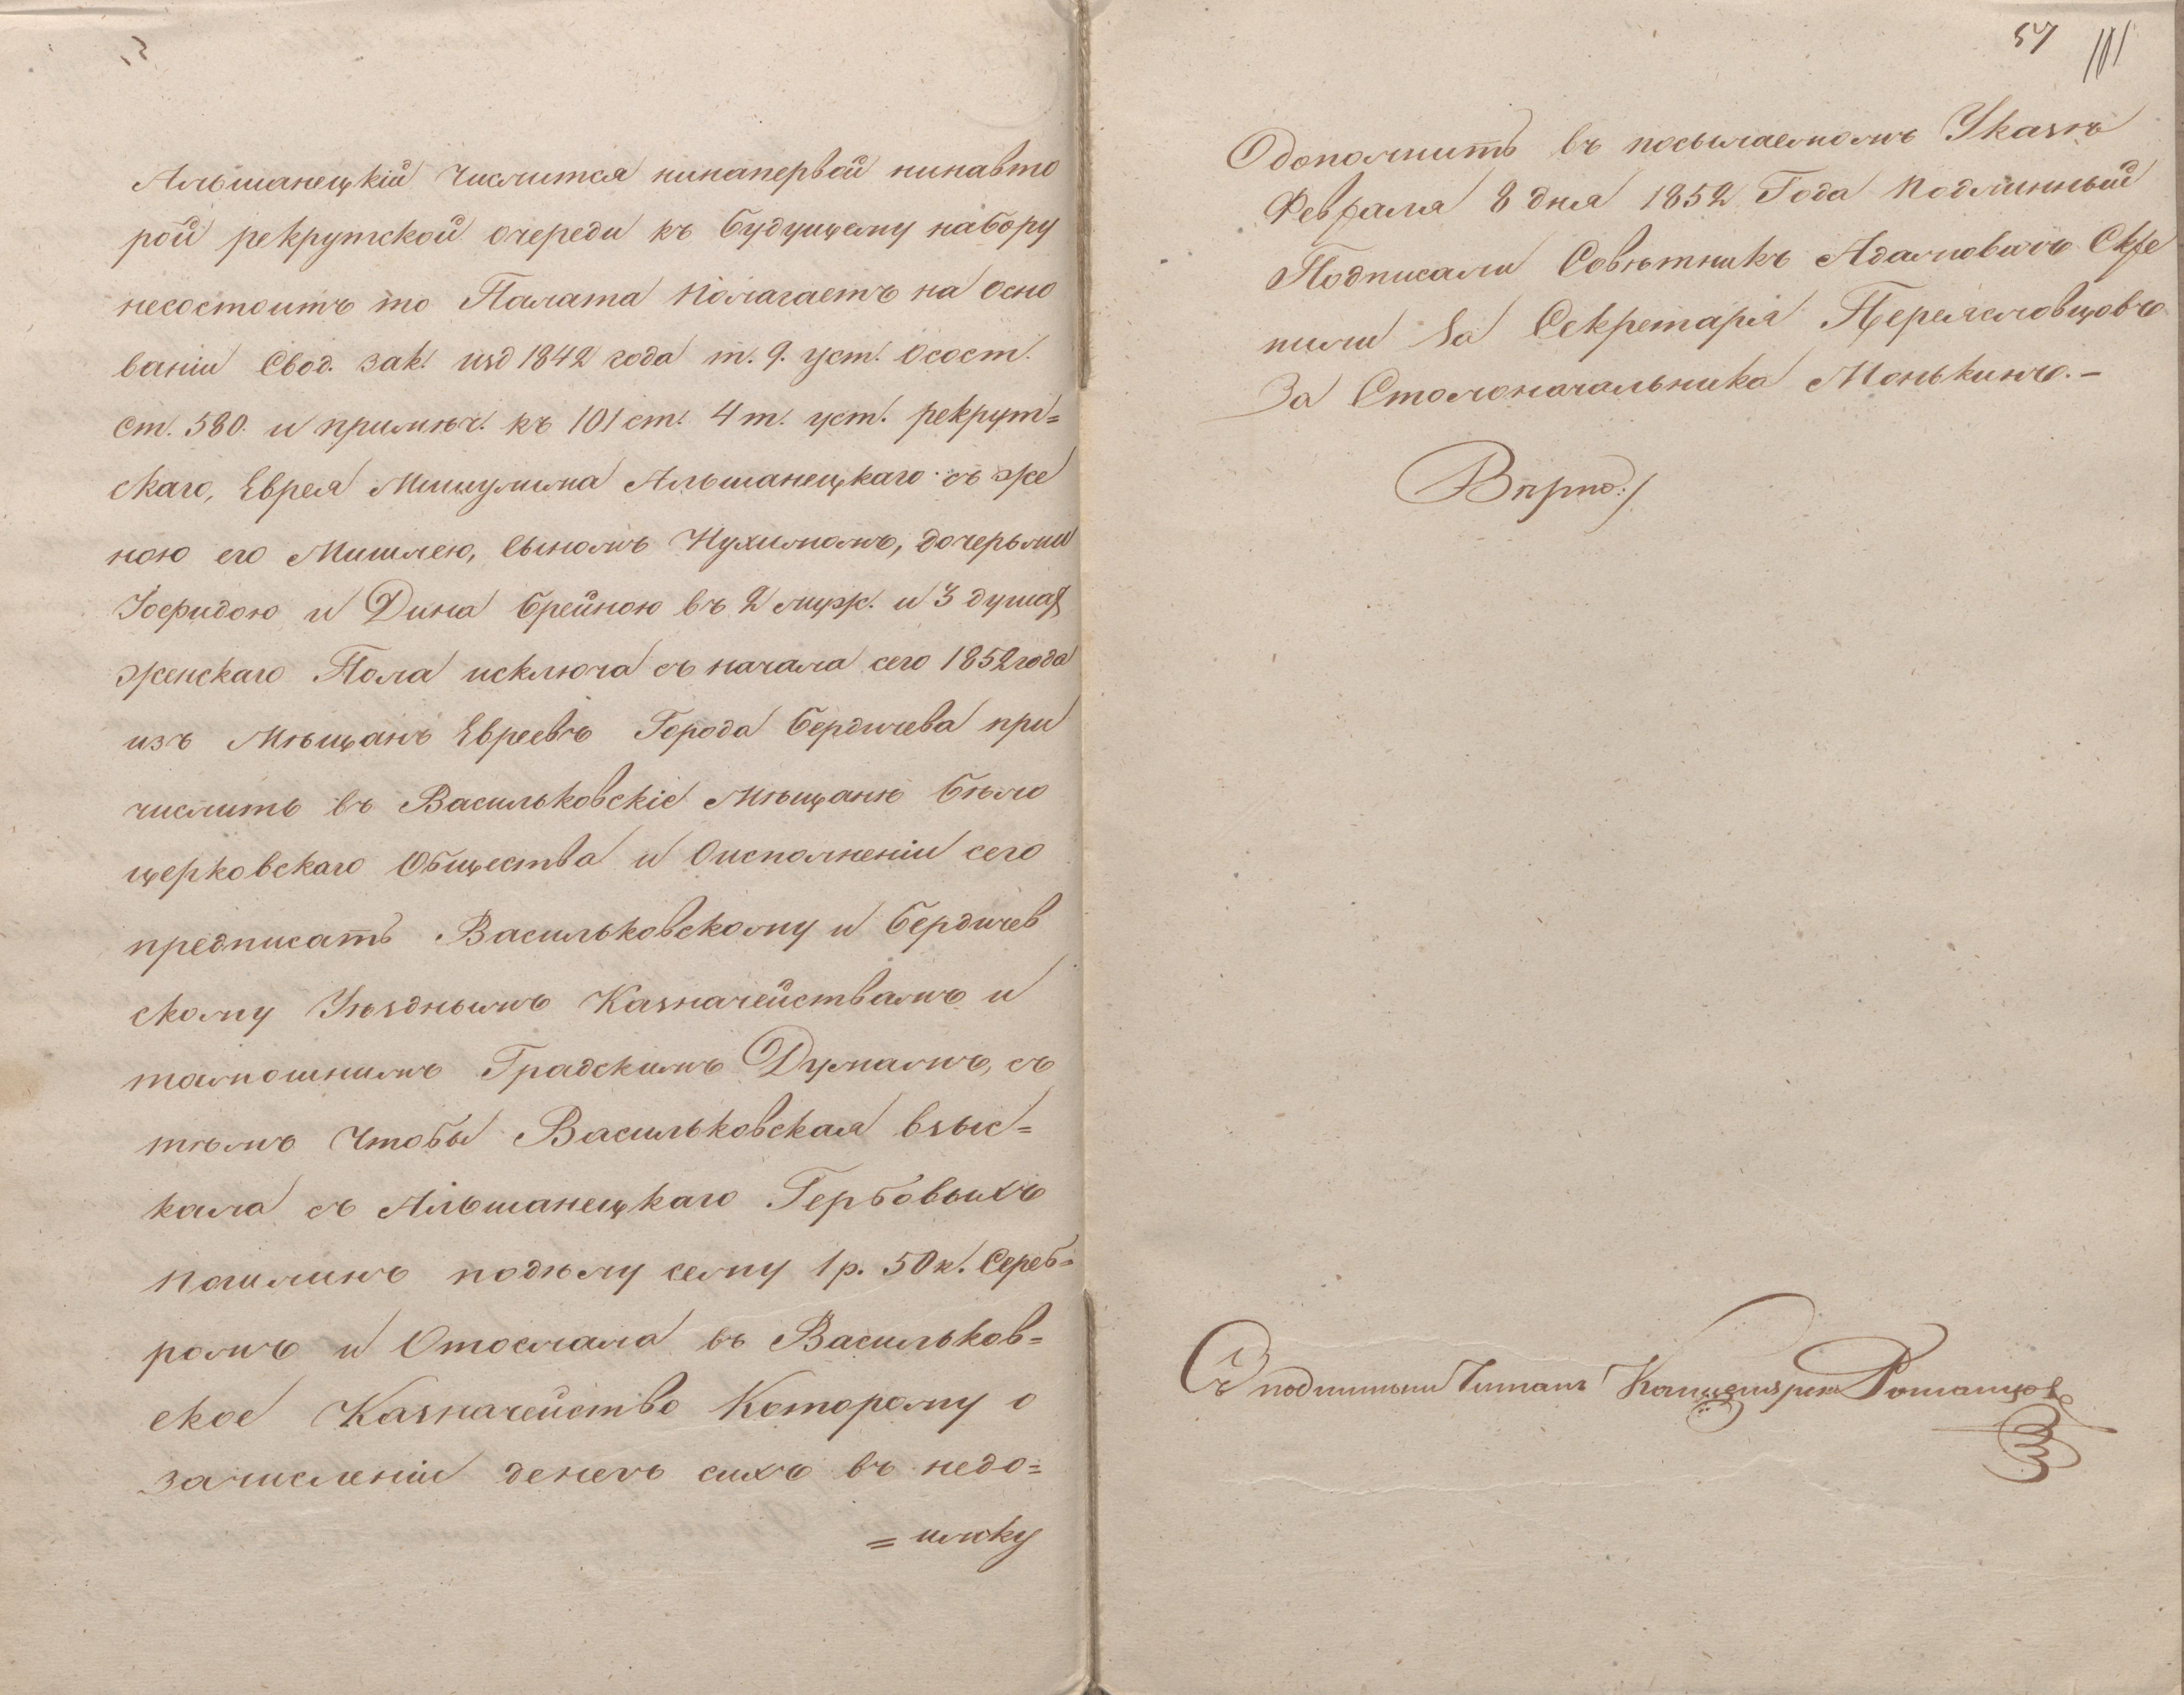 Альшанецкій числится нинапервой нинавто
рой рекрутской очереди къ будущему набору
несостоитъ то Палата полагаетъ на осно
ваніи Свод. зак. изд 1842 года т. 9. уст. осост.
ст. 580. и примѣч. къ 101 ст. 4 т. уст. рекрут=
скаго, Еврея Мишулима Альшанецкаго съ же
ною его Мишлею, сыномъ Нухимомъ, дочерьми
Іосфидою и Дина Брейною въ 2 муж. и 3 душах
женскаго Пола исключа съ начала сего 1852 года
изъ Мѣщанъ Евреевъ Города Бердичева при
числить въ Васильковскіе Мѣщане бѣло
церковскаго Общества и Оисполненіи сего
предписать Васильковскому и Бердичев
скому Уѣзднымъ Казначействамъ и
тамошнимъ Градскимъ Думамъ, съ
тѣмъ чтобы Васильковская взыс=
кала съ Альшанецкаго Гербовыхъ
пошлинъ подѣлу сему 1 р. 50 к. Сереб=
ромъ и Отослала въ Васильков=
ское Казначейство Которому о
зачисленіи денегъ сихъ въ недо=
=имку
57
Одополнить въ посылаемомъ Указѣ
Февраля 8 дня 1852 Года Подлинный
Подписали Совѣтникъ Адамовичъ Скре
пили За Секретаря Переясловцовъ
За Столоначальника Монькинъ.-
Вѣрно:/
Съ подлиннымъ Читалъ Канцеляристъ Романцов